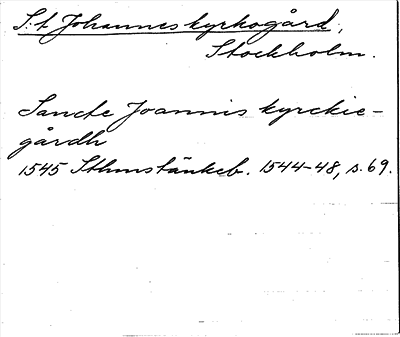 S:t Johannes kyrkogård,
Stockholm.
Sancte Joannis kyrckie-
gårdh
1545 Sthmstänkeb. 1544-48, s. 69.